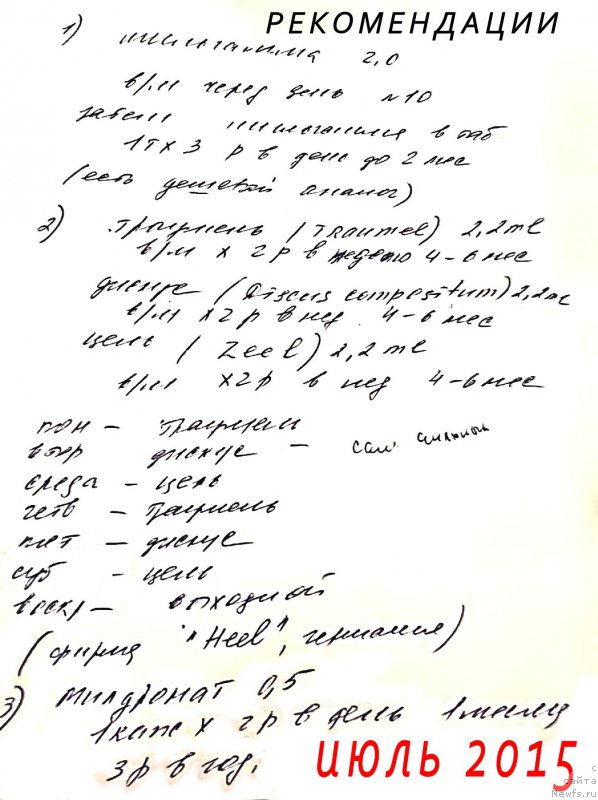 РЕКОМЕНДАЦИИ
1) 2,0
в/м через день №10
затем в таб
1т х 3 р в день до 2 мес
(есть дешевый аналог)
2) Траумель (Traumel) 2,2 ml
в/м х 2р в неделю 4-6 мес
дискус (Discus compositum) 2,2 ml
в/м х2р в нед. 4-6 мес
цель (Zeel) 2,2 ml
в/м х2р в нед 4-6 мес
пон - траумель
втор дискус - сам.
среда - цель
четв - траумель
пят - дискус
суб - цель
воскр - выходной
(фирма "Heel", германия)
3) милдронат 0,5
1 капс х 2р в день 1 месяц
3 р в год.
ИЮЛЬ 2015
с сайта
Newfs.ru